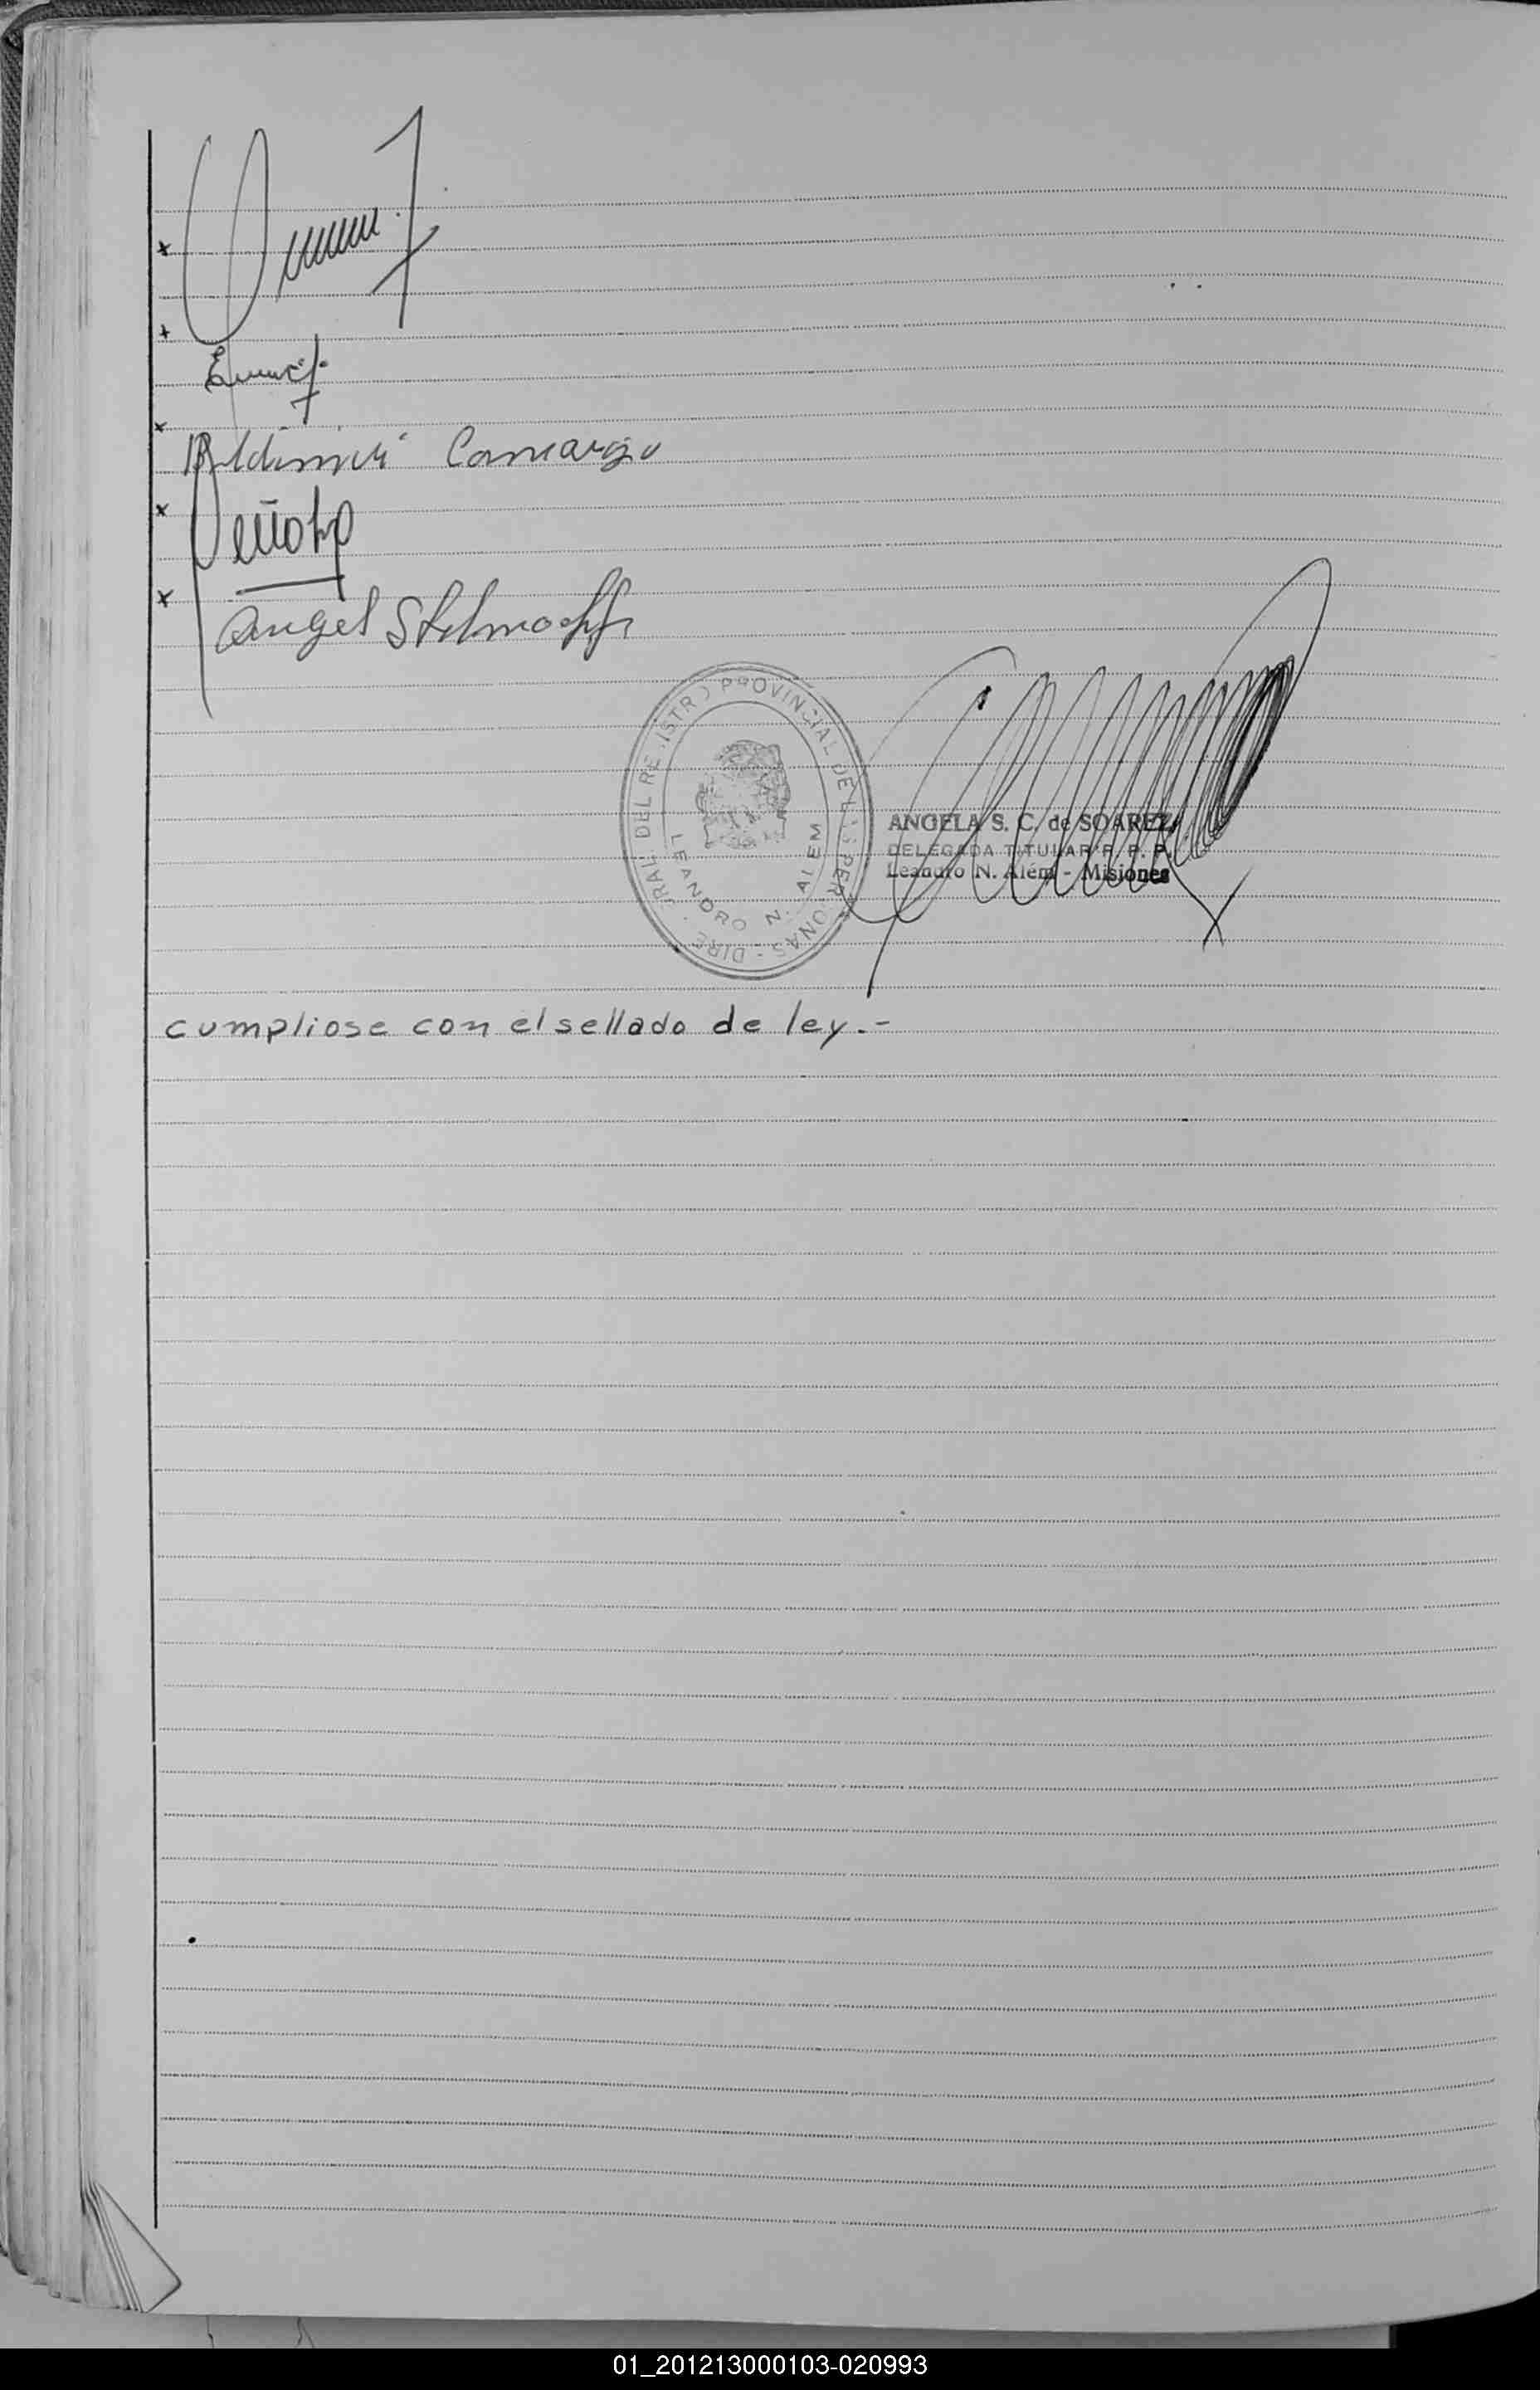 Camargo
Angel Stelmach
DEL REGISTRO PROVINCIAL DE LAS PERSONAS - DIRE
LEANDRO N. ALEM
ANGELA S. C. de SOAREZ
DELEGADA TITULAR R. P. P.
Leandro N. Além - Misiones
cumpliose con el sellado de ley.-
01_201213000103-020993